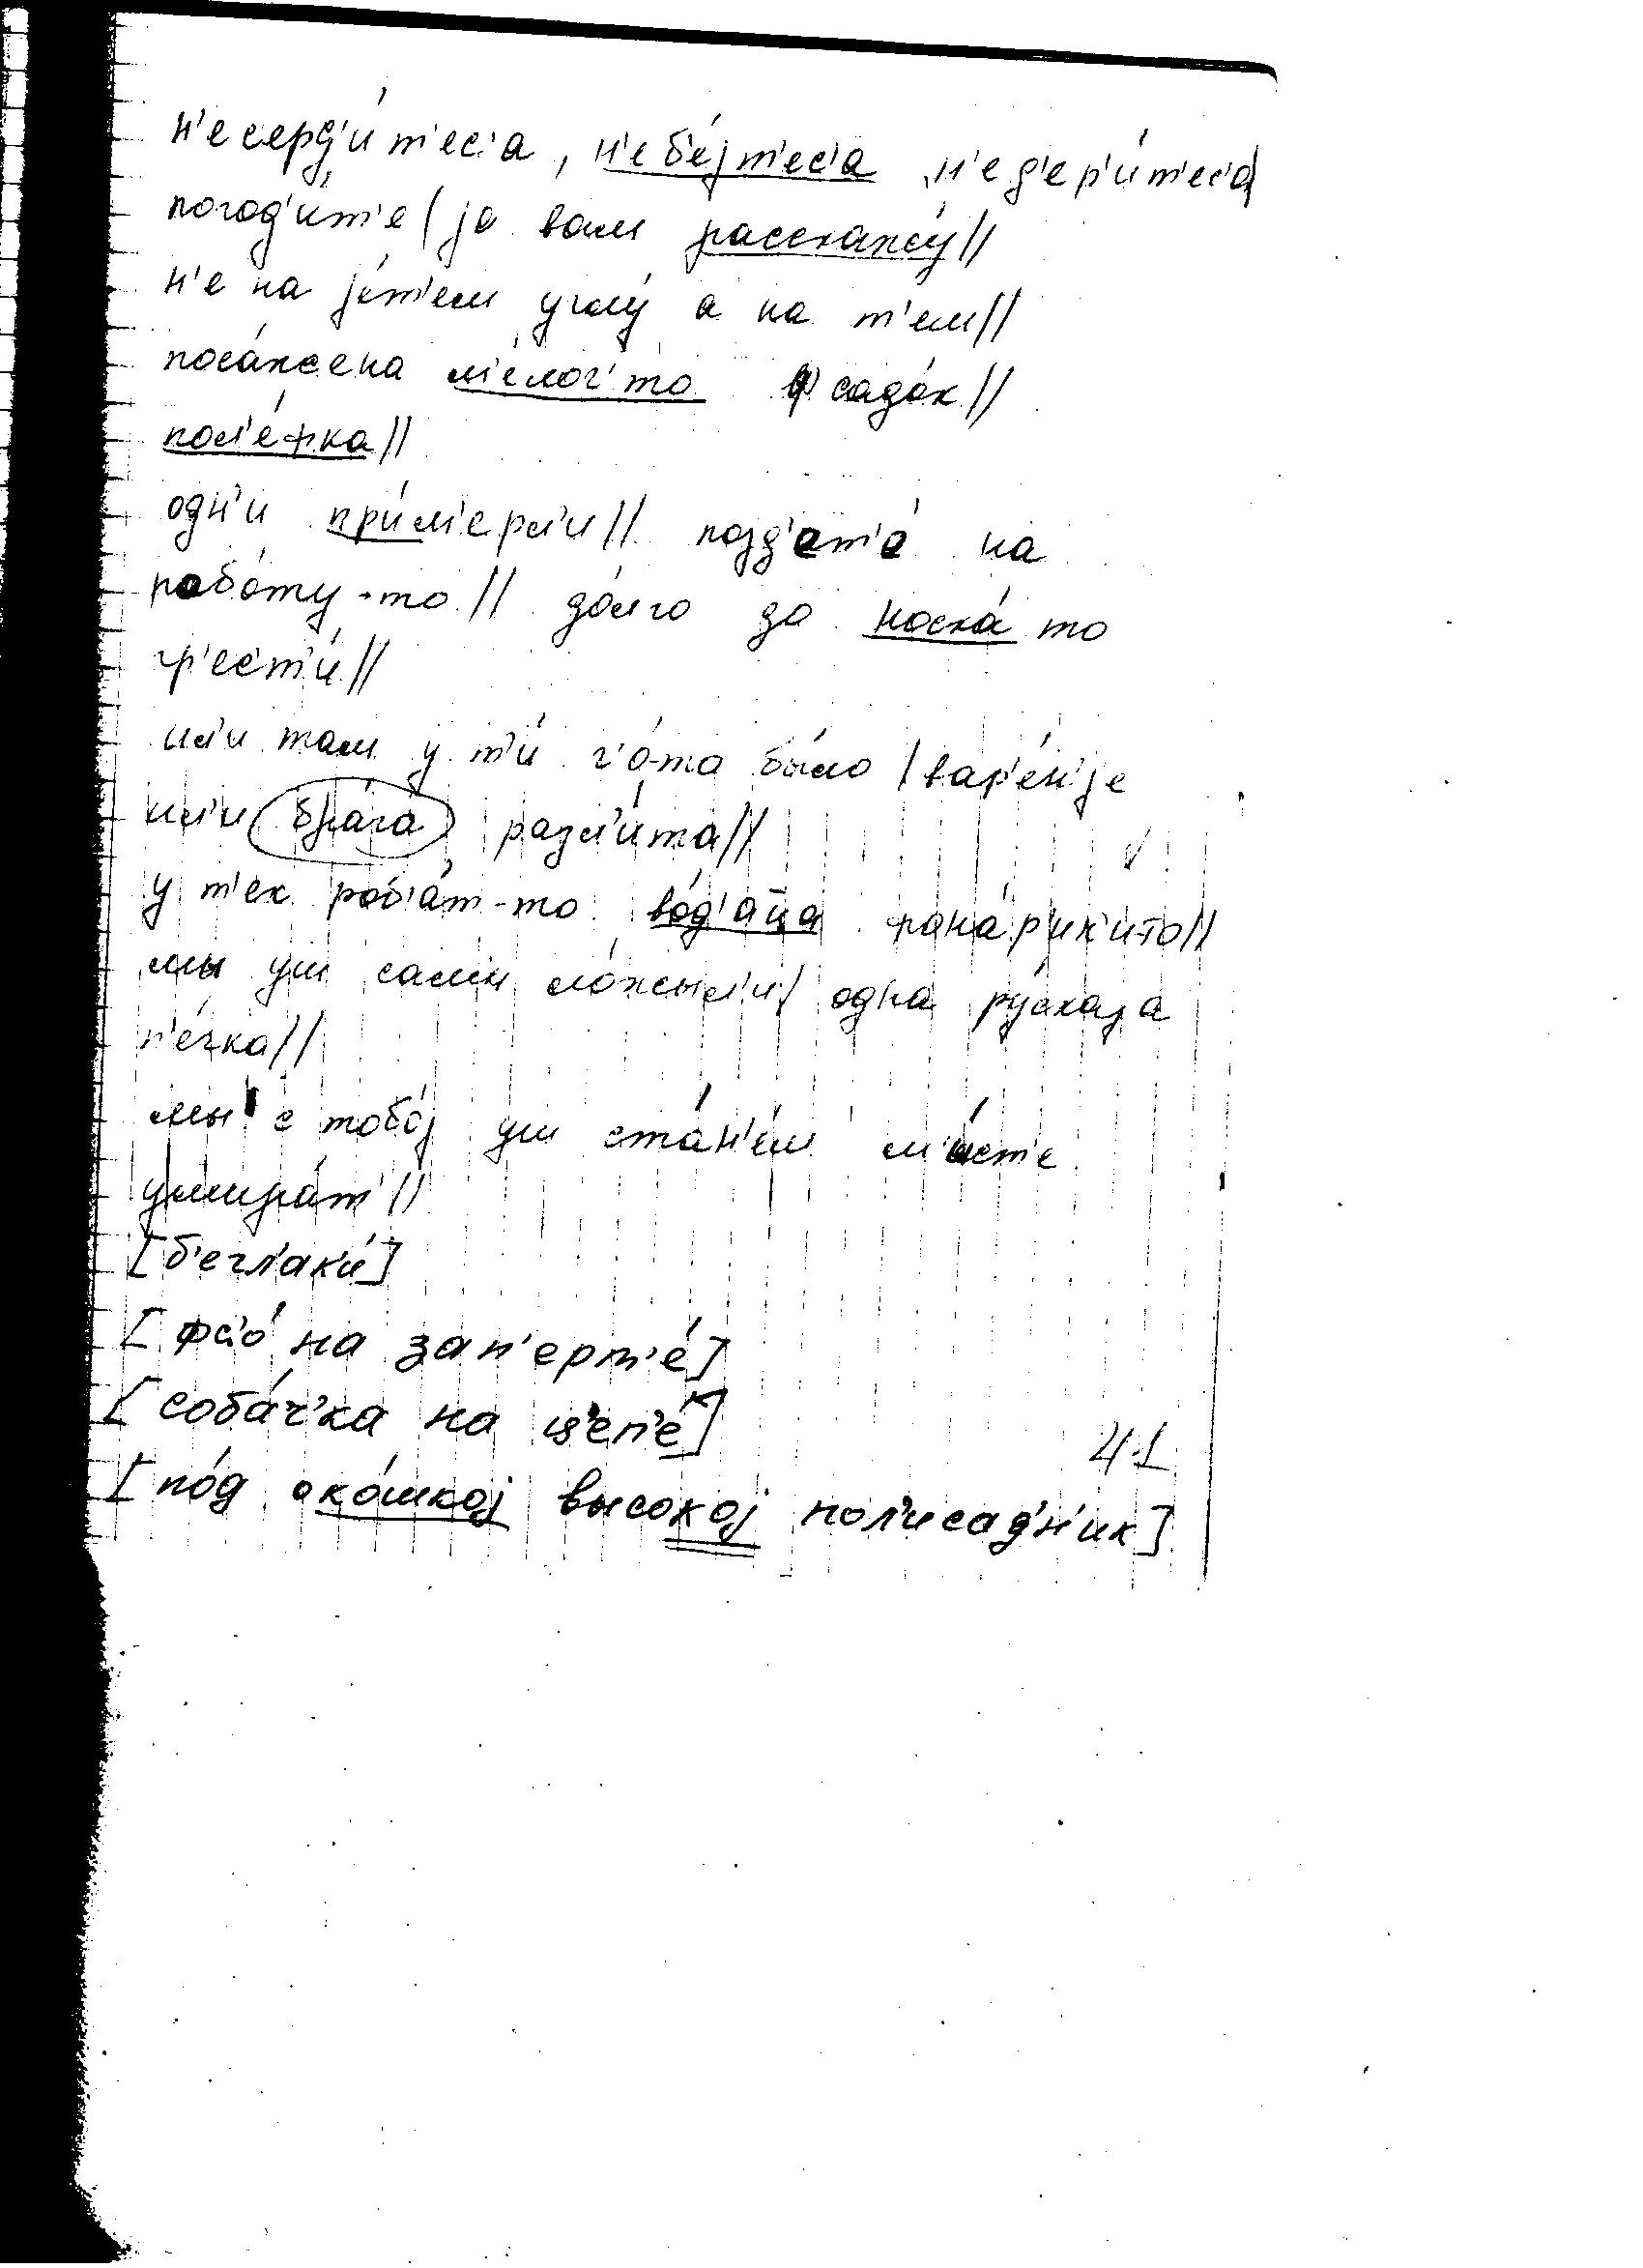 н'есерд'и́т'ес'а, н'еб'е́јт'ес'а, н'ед'ер'и́т'ес'а/
погод'и́т'е/ја вам расскажу́//
н'е на је́т'ем углу́ а на т'ем//
поса́жена м'е́лоч'то ф садо́к//
пол'е́фка//
одн'и при́м'ерл'и// појд'ет'е́ на
робо́ту-то// до́лго до носка́ то
гр'ес'т'и́//
ил'и там у т'и́ ч'о́-то бы́ло/вар'е́н'је
ил'и бра́га разл'и́та//
у т'ех роб'а́т-то во́д'аца фона́р'ик'и-то//
мы уш сами ло́жыл'и/ одна ру́скаја
п'е́чка//
мы с тобо́ј уш ста́н'ем м'и́ст'е
умира́т'//
[б'егл'ак'и́]
[фс'о́ на зап'ерт'е́]
[соба́ч'ка на ц'еп'е́]
41
[по́д око́шкој высокој пол'исад'н'ик]